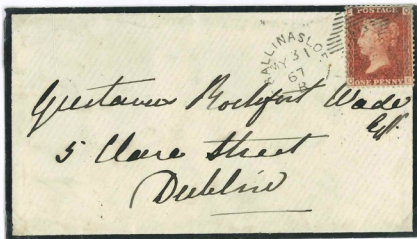 POSTAGE
ONE PENNY
BALLINASLOE
MY 31
67
B
Gustavus Rochfort Wade
Esqr
5 Clare Street
Dublin